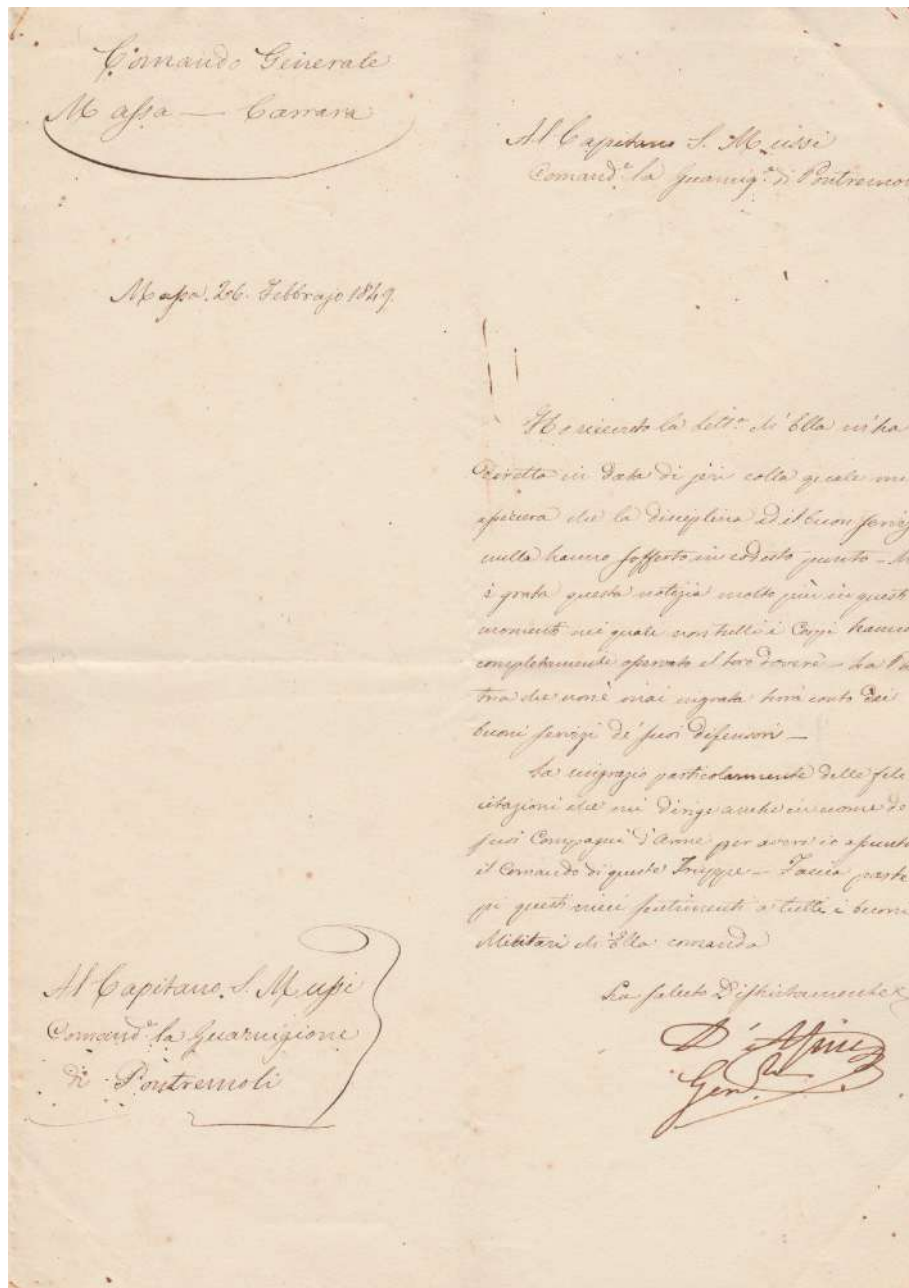 Comando Generale
Massa — Carrara
Al Capitano S. Mussi
Comand.e la Guarnig.e di Pontremoli
Massa. 26. Febbrajo 1849.
Ho ricevuto la lett.a ch'Ella m'ha
diretta in data di jeri colla quale mi
che la disciplina ed il buon serviz
nulla hanno sofferto in codesto punto – M
è grata questa notizia molto più in questi
momenti nei quale non tutti i Corpi hanno
completamente osservato il loro dovere – La Pa
tria che non è mai ingrata terrà conto dei
buoni servizi de' suoi difensori —
La ringrazio particolarmente delle feli
citazioni che mi dirige anche in nome de
suoi Compagni d'Arme per avere io assunto
il Comando di queste Truppe – Faccia parte
pi questi miei sentimenti a tutti i buoni
Militari ch'Ella comanda
La saluto Distintamente
Gen.le
Al Capitano. S. Mussi
Comand.e la Guarnigione
di Pontremoli